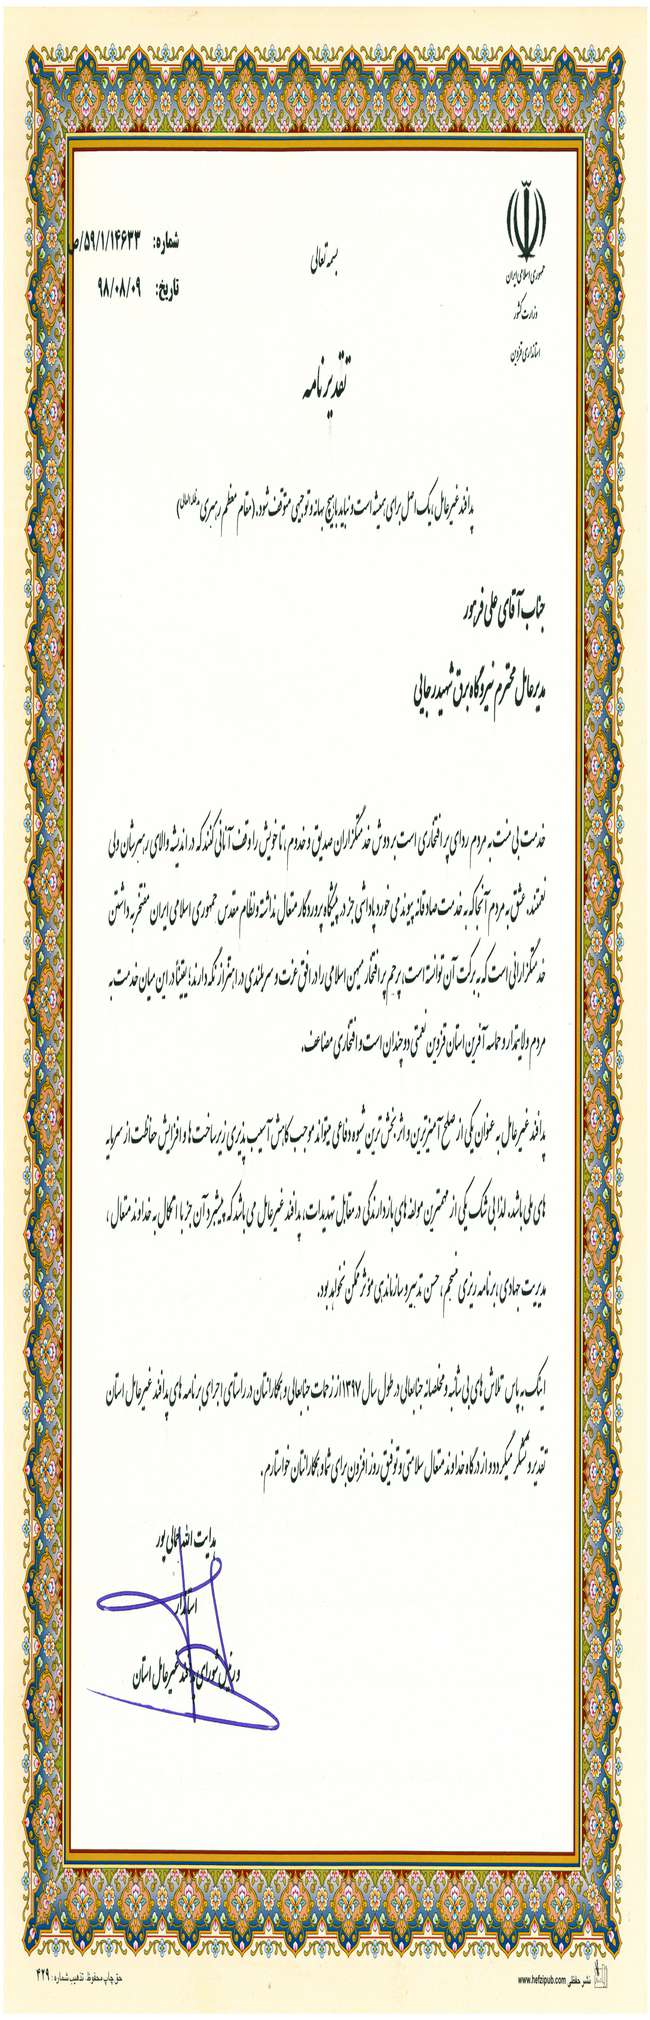 شماره: ۵۹/۱/۱۴۶۳۳/ص
تاریخ: ۹۸/۰۸/۰۹
بسمه تعالی
جمهوری اسلامی ایران
وزارت کشور
استانداری قزوین
تقدیرنامه
پدافند غیرعامل، یک اصل برای همیشه است و نباید با هیچ بهانه و توجیهی متوقف شود. (مقام معظم رهبری مدظله العالی)
جناب آقای علی فرهور
مدیرعامل محترم نیروگاه برق شهید رجایی
خدمت بی منت به مردم ردای پر افتخاری است بر دوش خدمتگزاران صدیق و خدوم، تا خویش را وقف آنانی کنند که در اندیشه والای رهبرشان ولی
نعمتند. عشق به مردم آنجا که به خدمت صادقانه پیوند می خورد پاداشی جز در پیشگاه پروردگار متعال نداشته و نظام مقدس جمهوری اسلامی ایران مفتخر به داشتن
خدمتگزارانی است که به برکت آن توانسته است، پرچم پر افتخار میهن اسلامی را در افق عزت و سربلندی در اهتزاز نگه دارند؛ یقیناً در این میان خدمت به
مردم ولایتمدار و حماسه آفرین استان قزوین نعمتی دو چندان است و افتخاری مضاعف.
پدافند غیرعامل به عنوان یکی از صلح آمیزترین و اثربخش ترین شیوه دفاعی میتواند موجب کاهش آسیب پذیری زیرساخت ها و افزایش حفاظت از سرمایه
های ملی باشد. لذا بی شک یکی از مهمترین مولفه های بازدارندگی در مقابل تهدیدات، پدافند غیرعامل می باشد که پیشبرد آن جز با اتکال به خداوند متعال،
مدیریت جهادی، برنامه ریزی منسجم، حسن تدبیر و سازماندهی مؤثر ممکن نخواهد بود.
اینک به پاس تلاش های بی شائبه و مخلصانه جنابعالی در طول سال ۱۳۹۷ از زحمات جنابعالی و همکارانتان در راستای اجرای برنامه های پدافند غیرعامل استان
تقدیر و تشکر میگردد و از درگاه خداوند متعال سلامتی و توفیق روز افزون برای شما و همکارانتان خواستارم.
هدایت الله جمالی پور
استاندار
و رئیس شورای پدافند غیرعامل استان
حق چاپ محفوظ تذهیب شماره: ۴۲۹
نشر حفظی www.hefzipub.com